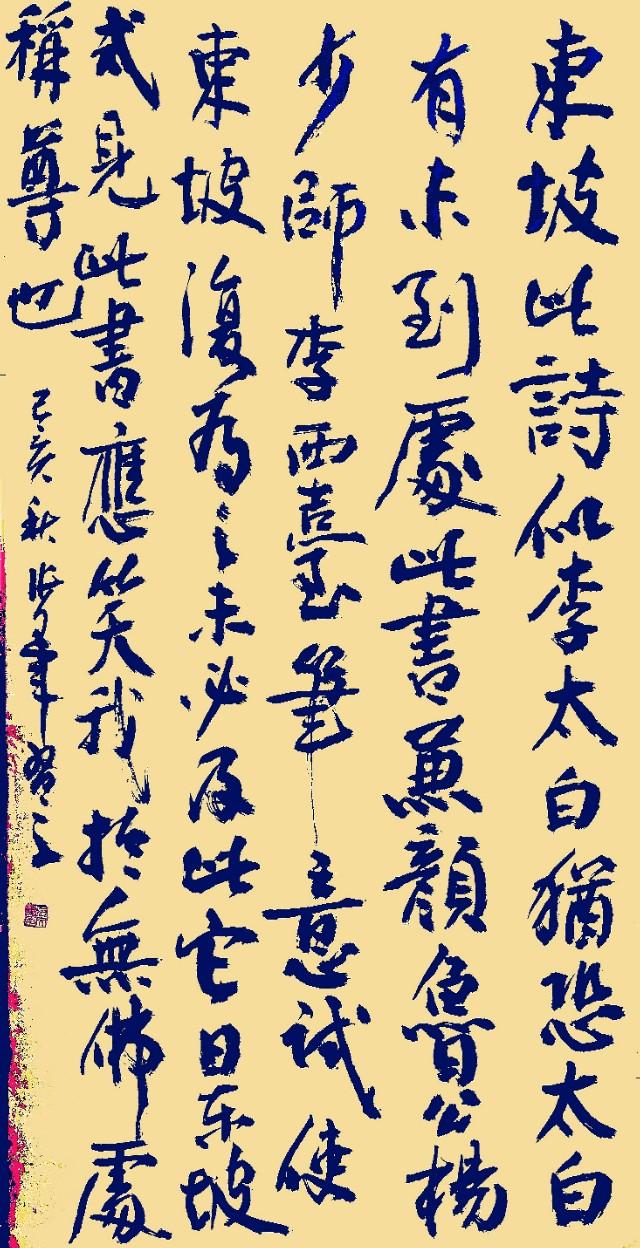 東坡此詩似李太白猶恐太白
有未到處此書兼顏魯公楊
少師李西臺筆意試使
東坡復為之未必及此它日東坡
或見此書應笑我於無佛處
稱尊也
己亥秋